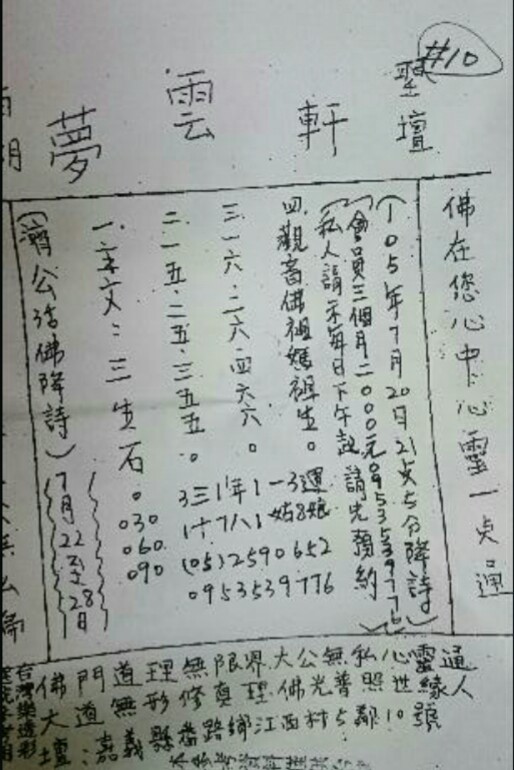 #10
夢雲軒
聖壇
佛在您心中心靈一点通
(105年7月20日21点5分降詩)
(會員三個月二000元0953539776)
(私人請示每日下午 請先預約)
四.觀音佛祖媽祖生。
三.一六.二六.四六六。
二.一五.二五.三五五。
一.字文:三生石。
030
060
090
(05)2590652
0953539776
(濟公活佛降詩)
7月22至28日
佛門道理無限界大公無私心靈通
大道無形修真理佛光普照世緣人
壇:嘉義縣番路鄉江西村5鄰10號
台灣樂透彩